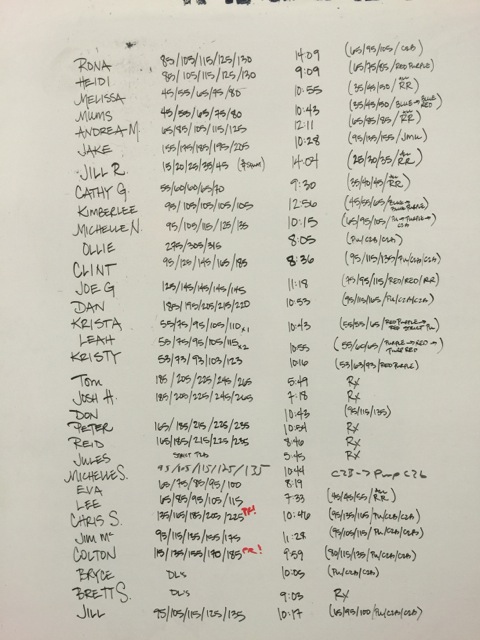 RONA 85/105/115/125/130 14:09 (65/95/105/C2B)
HEIDI 85/105/115/125/130 9:09 (65/75/85/RED PURPLE)
MELISSA 45/55/65/75/80 10:55 (35/45/50/RR)
MUMS 45/55/65/75/80 10:43 (35/45/50/BLUE→BLUE RED)
ANDREA M. 65/85/105/115/125 12:11 (65/85/85/RR)
JAKE 155/175/185/195/205 10:28 (95/135/155/JMU)
JILL R. 15/20/25/35/45 14:04 (25/30/35/RR)
CATHY G. 55/60/60/65/70 9:30 (35/40/45/RR)
KIMBERLEE 95/105/105/105/105 12:56 (45/55/65/
MICHELLE N. 95/105/115/125/135 10:15 (65/95/105/PU→PU→C2B)
OLLIE 275/305/315 8:05 (PU/C2B/C2B)
CLINT 95/125/145/165/185 8:36 (95/115/135/PU/C2B/C2B)
JOE G 125/145/145/145/145 11:18 (75/95/115/RED/RED/RR)
DAN 185/195/205/215/220 10:53 (95/115/165/PU/C2B/C2B)
KRISTA 55/75/95/105/110 x1 10:43 (55/55/65/RED PURPLE→
LEAH 55/75/95/105/115 x2 10:55 (55/60/65/PURPLE→RED→
KRISTY 53/73/93/103/123 10:16 (53/63/93/RED PURPLE)
TOM 185/205/225/245/265 5:49 RX
JOSH H. 185/205/225/245/265 7:18 RX
DON 10:43 (95/115/135)
PETER 165/185/215/225/235 10:54 RX
REID 165/185/215/225/235 8:46 RX
JULES 5:45 RX
MICHELLE S. 95/105/115/125/135 10:44 C2B→Pump C2B
EVA 65/75/85/95/100 8:19
LEE 65/85/95/105/115 7:33 (45/45/55/RR)
CHRIS S. 135/165/185/205/225 PR! 10:46 (95/135/165/PU/C2B/C2B)
JIM Mc 95/115/135/155/175 11:28 (95/105/115/PU/C2B/C2B)
COLTON 115/135/155/170/185 PR! 9:59 (80/115/135/PU/C2B/C2B)
BRYCE DL's 10:05 (PU/C2B/C2B)
BRETT S. DL's 9:03 RX
JILL 95/105/115/125/135 10:17 (65/95/100/PU/C2B/C2B)